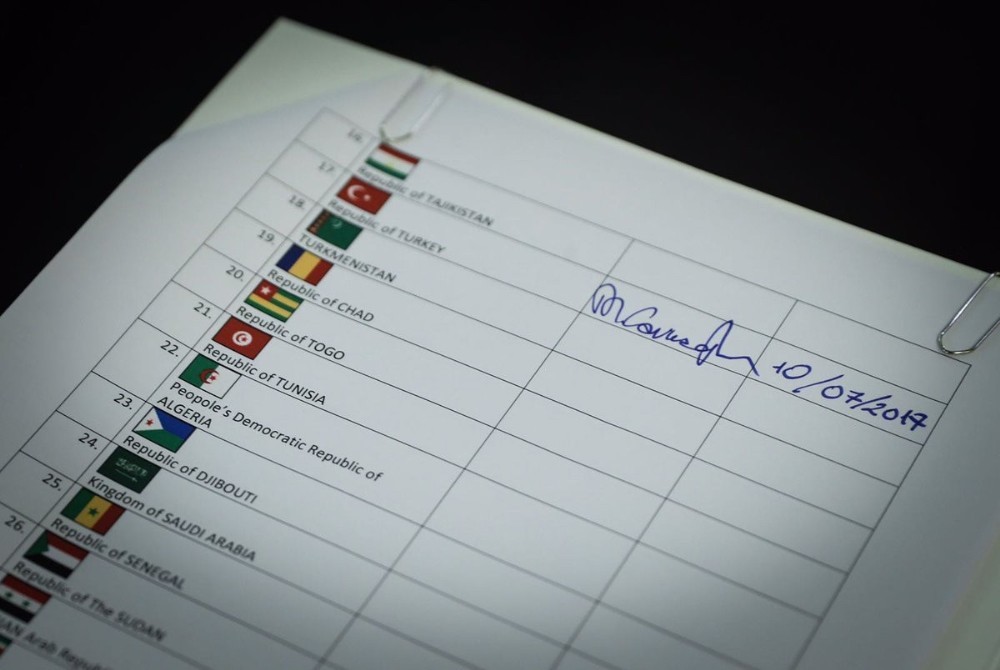 16.
Republic of TAJIKISTAN
17.
Republic of TURKEY
10/07/2017
18.
TURKMENISTAN
19.
Republic of CHAD
20.
Republic of TOGO
21.
Republic of TUNISIA
22.
Peopole's Democratic Republic of
ALGERIA
23.
Republic of DJIBOUTI
24.
Kingdom of SAUDI ARABIA
25.
Republic of SENEGAL
26.
Republic of The SUDAN
Arab